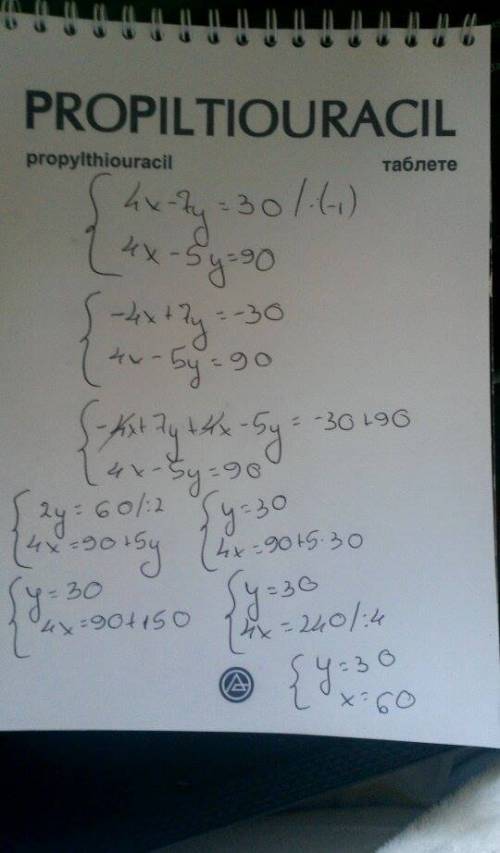 PROPILTIOURACIL
propylthiouracil таблете
4x-7y=30/·(-1)
4x-5y=90
-4x+7y=-30
4x-5y=90
-4x+7y+4x-5y=-30+90
4x-5y=90
2y=60/:2
4x=90+5y
y=30
4x=90+5·30
y=30
4x=90+150
y=30
4x=240/:4
y=30
x=60